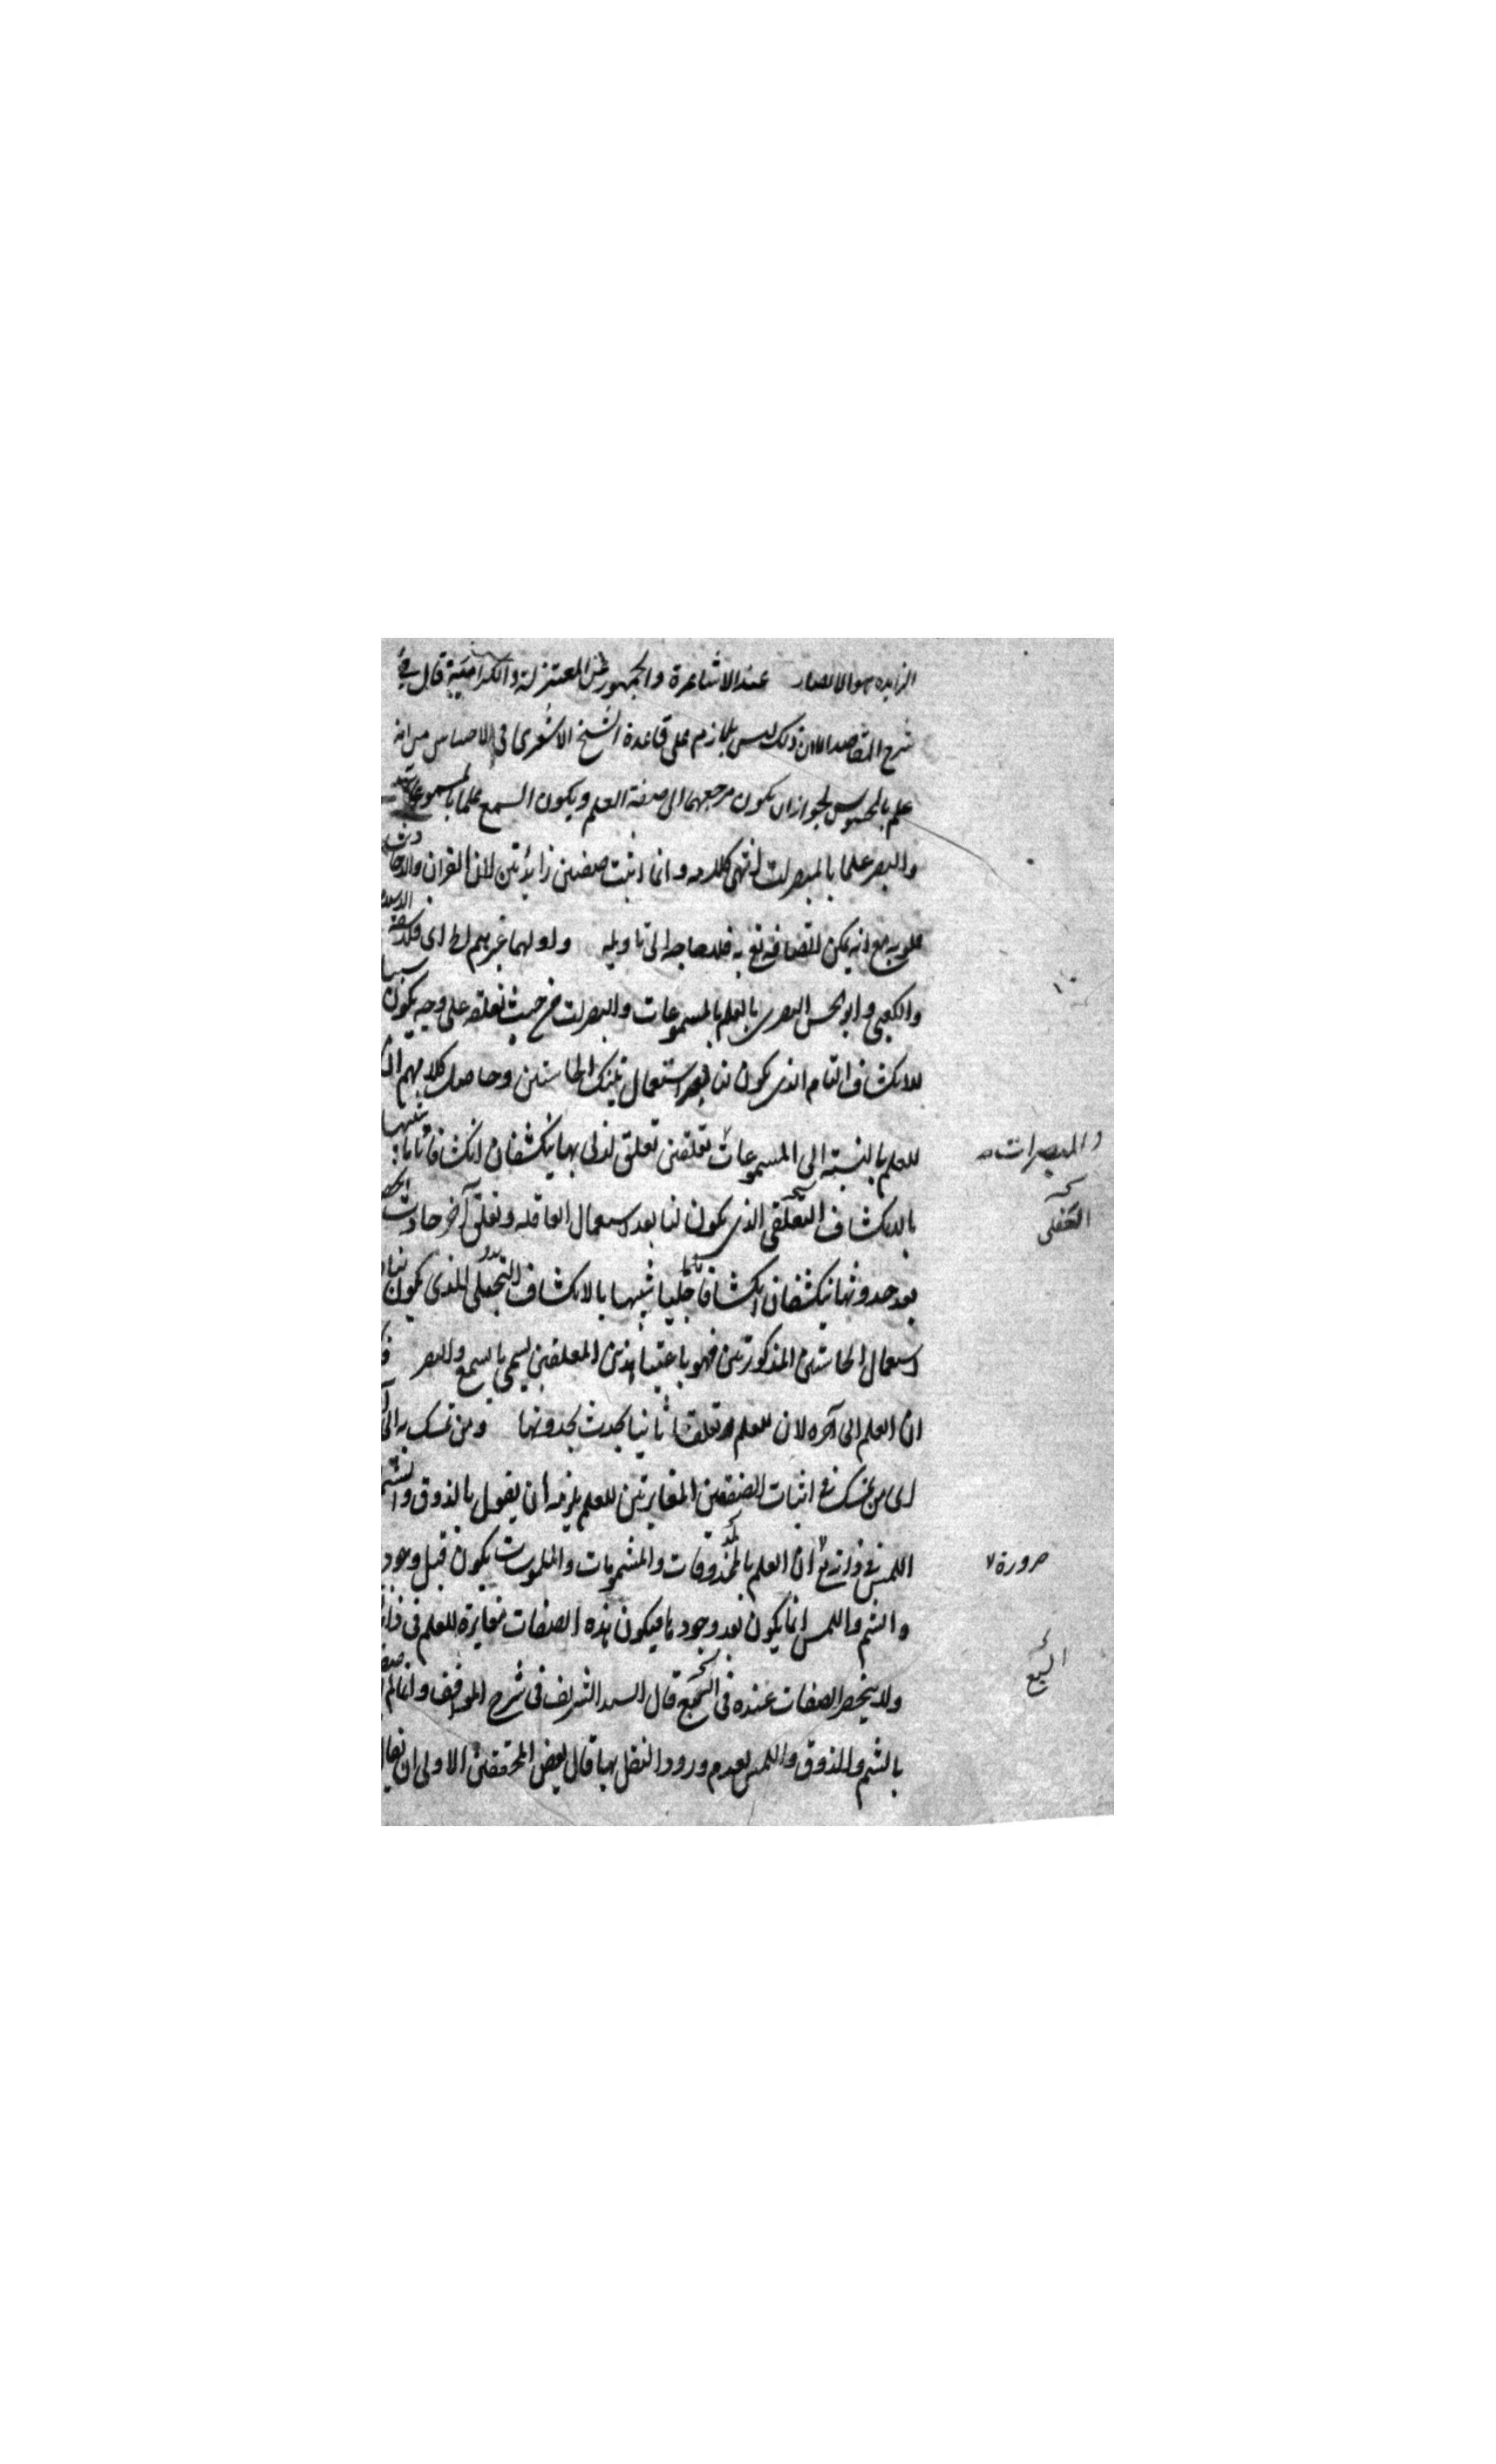 الزايده هو الابصار عند الاشاعرة والجمهور من المعتزلة والكرامية قال في
شرح المقاصد الا ان ذلك ليس بلازم على قاعدة الشيخ الاشعرى في الاحساس من انه
علم بالمحسوس لجواز ان يكون مرجعهما الى صفة العلم ويكون السمع علما بالمسموعات
والبصر علما بالمبصرات انتهى كلامه وانما اثبت صفتين زايدتين لان القران والاحاديث
مملو به مع انه يمكن اتصافه تع به فلا حاجة الى تاويله واولهما غيرهم اى فلاسفة الاسلام
والكعبي وابو الحسن البصرى بالعلم بالمسموعات والمبصرات من حيث تعلقه على وجه يكون سببا
للانكشاف التام الذى يكون لنا بعد استعمال تينك الحاستين وحاصل كلامهم ان
للعلم بالنسبة الى المسموعات تعلقين تعلق ازلى بها ينكشفان انكشافا تاما شبيها
والمبصرات
بالانكشاف التعقلى الذى يكون لنا بعد استعمال العاقلة وتعلق آخر حادث
التعقلى
بعد حدوثها ينكشفان انكشافا جليا شبيها بالانكشاف الذى يكون لنا
استعمال الحاستين المذكورتين فهو باعتبار هذين التعلقين يسمى بالسمع والبصر
ان العلم الى آخره لان للعلم تعلقا ثانيا يحدث بحدوثها ومن تمسك به الى
اى من تمسك في اثبات الصفتين المغايرتين للعلم يلزمه ان يقول بالذوق والشم
اللمس ان العلم بالمذوقات والمشمومات والملموسات يكون قبل وجود
ضرورة
والشم واللمس انما يكون بعد وجودها فيكون هذه الصفات مغايرة للعلم في
ولا ينحصر الصفات عنده في السبع قال السيد الشريف في شرح المواقف وانما لم
السبع
بالشم والذوق واللمس لعدم ورود النقل بها قال بعض المحققين الاولى ان يقال